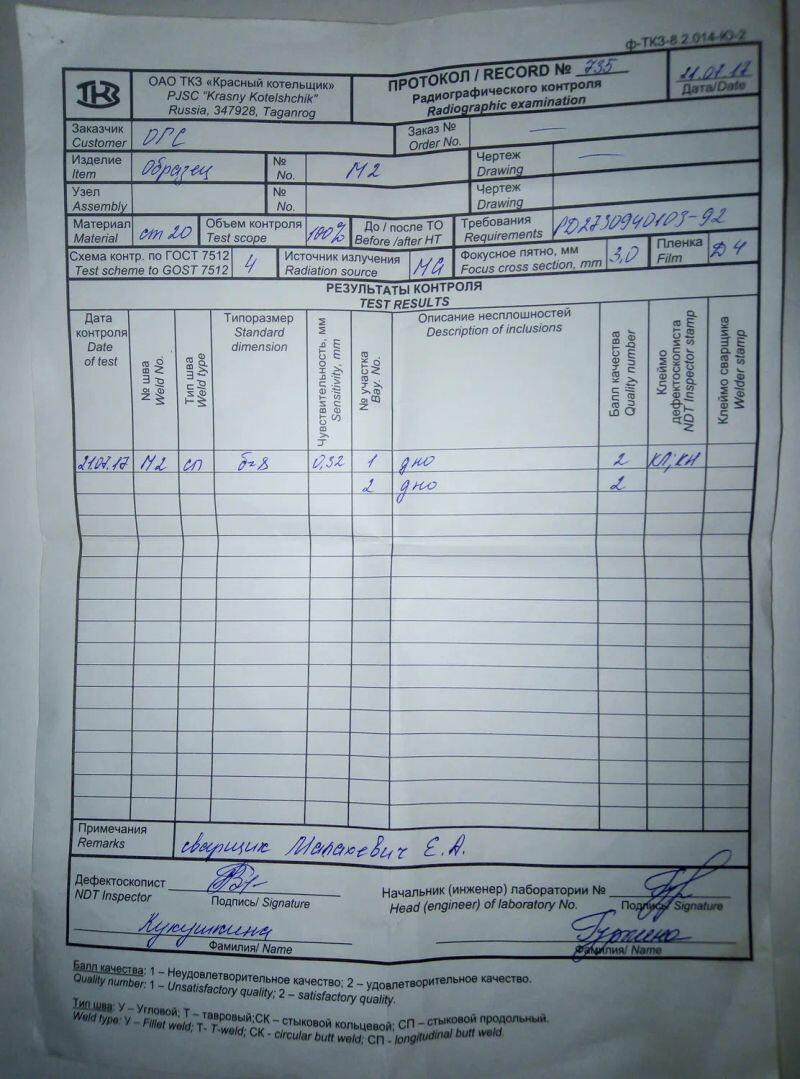 ф-ТКЗ-8.2.014-Ю-2
ТКЗ
ОАО ТКЗ «Красный котельщик»
PJSC "Krasny Kotelshchik"
Russia, 347928, Taganrog
ПРОТОКОЛ / RECORD № 735
Радиографического контроля
Radiographic examination
21.07.17
Дата/Date
Заказчик
Customer
ОГС
Заказ №
Order No.
—
Изделие
Item
Образец
№
No.
М2
Чертеж
Drawing
—
Узел
Assembly
№
No.
Чертеж
Drawing
Материал
Material
ст 20
Объем контроля
Test scope
100%
До / после ТО
Before /after HT
Требования
Requirements
РД2730940103-92
Схема контр. по ГОСТ 7512
Test scheme to GOST 7512
4
Источник излучения
Radiation source
Фокусное пятно, мм
Focus cross section, mm
3,0
Пленка
Film
Д4
РЕЗУЛЬТАТЫ КОНТРОЛЯ
TEST RESULTS
Дата
контроля
Date
of test
№ шва
Weld No.
Тип шва
Weld type
Типоразмер
Standard
dimension
Чувствительность, мм
Sensitivity, mm
№ участка
Bay. No.
Описание несплошностей
Description of inclusions
Балл качества
Quality number
Клеймо
дефектоскописта
NDT Inspector stamp
Клеймо сварщика
Welder stamp
21.07.17 М2 СП б=8 0,32 1 дно 2 КЛ;КН
2 дно 2
Примечания
Remarks
сварщик Малахевич Е.А.
Дефектоскопист
NDT Inspector
Подпись/ Signature
Начальник (инженер) лаборатории №
Head (engineer) of laboratory No.
Подпись/ Signature
Кукушкина
Фамилия/ Name
Фамилия/ Name
Балл качества: 1 – Неудовлетворительное качество; 2 – удовлетворительное качество.
Quality number: 1 – Unsatisfactory quality; 2 – satisfactory quality.
Тип шва: У – Угловой; Т – тавровый;СК – стыковой кольцевой; СП – стыковой продольный.
Weld type: У – Fillet weld; Т- T-weld; СК - circular butt weld; СП - longitudinal butt weld.